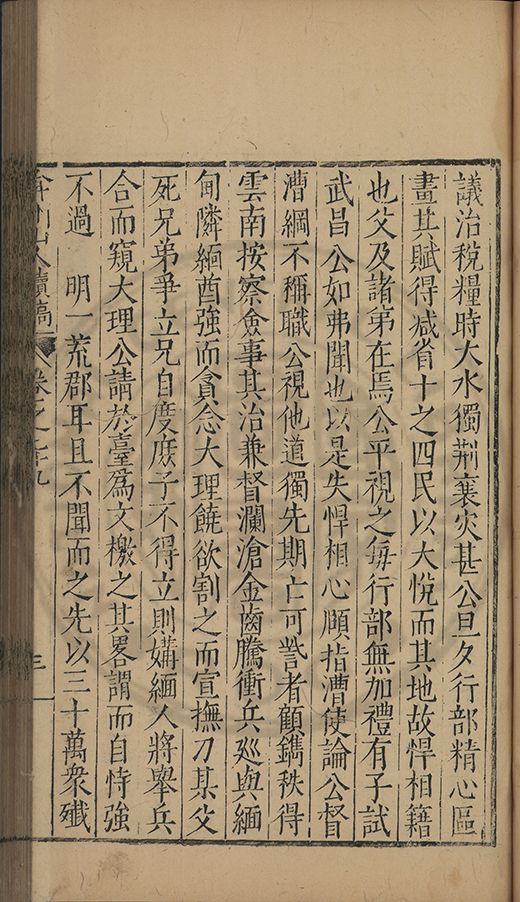 議治稅糧時大水獨荆襄灾甚公旦夕行部精心區
畫其賦得减省十之四民以大悅而其地故悍相籍
也父及諸弟在焉公平視之每行部無加禮有子試
武昌公如弗聞也以是失悍相心頤指漕使論公督
漕綱不稱職公視他道獨先期亡可訾者顧鐫秩得
雲南按察僉事其治兼督瀾滄金齒騰衝兵廵與緬
甸隣緬酋強而貪念大理饒欲割之而宣撫刀某父
死兄弟爭立兄自度庶子不得立則媾緬人將舉兵
合而窺大理公請於臺爲文檄之其畧謂而自恃強
不過 明一荒郡耳且不聞而之先以三十萬衆殱
弇州山人續稿 卷之 九 三